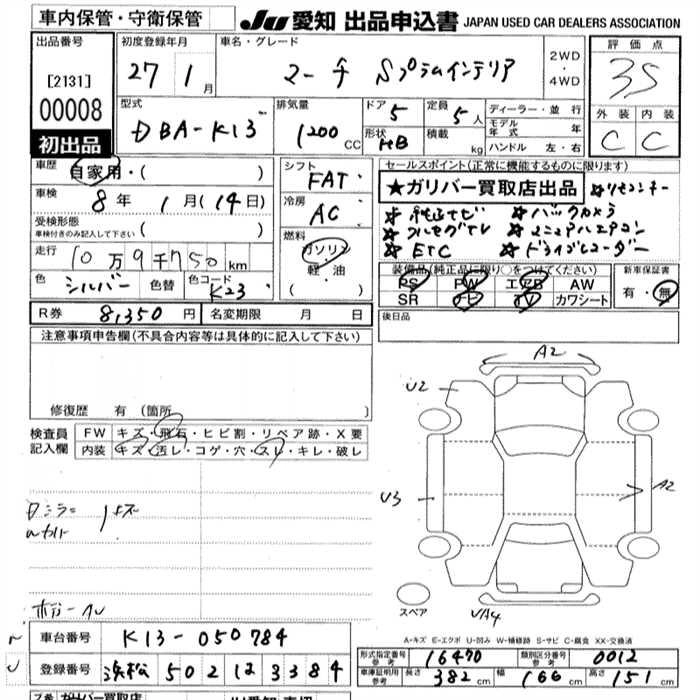 車内保管・守衛保管
JU 愛知 出品申込書 JAPAN USED CAR DEALERS ASSOCIATION
出品番号
[2131]
00008
初出品
初度登録年月
27 1月
車名・グレード
マーチ Sプラムインテリア
2WD
・
4WD
評価点
3S
外装 内装
C C
型式
DBA-K13
排気量
1200 CC
ドア 5
形状 HB
定員 5人
積載 kg
ディーラー・並行
モデル年式 年
ハンドル 左・右
車歴 自家用・( )
車検 8年 1月(14日)
受検形態
車検付きのみ記入して下さい ( )
走行 10万9千750km
色 シルバー 色替 色コード K23
シフト FAT
冷房 AC
燃料
ガソリン
軽・油
( )
セールスポイント(正常に機能するものに限ります)
★ガリバー買取店出品 ★リモコンキー
★純正ナビ ★バックカメラ
★フルセグTV ★マニュアルエアコン
★ETC ★ドライブレコーダー
装備品(純正品に限り○をつけてください)
PS PW エアB AW
SR ナビ TV カワシート
新車保証書
有・無
R券 8,350円 名変期限 月 日
後日品
注意事項申告欄(不具合内容等は具体的に記入して下さい)
修復歴 有 (箇所 )
検査員記入欄
FW キズ・飛石・ヒビ割・リペア跡・X要
内装 キズ・汚レ・コゲ・穴・スレ・キレ・破レ
A2
U2
U3
A2
スペア
A-キズ E-エクボ U-凹み W-補修跡 S-サビ C-腐食 XX-交換済
車台番号 K13-050784
登録番号 浜松 502 は 3384
形式指定番号 参考 16470
類別区分番号 参考 0012
車庫証明用 参考 長さ 382cm 幅 166cm 高さ 151cm